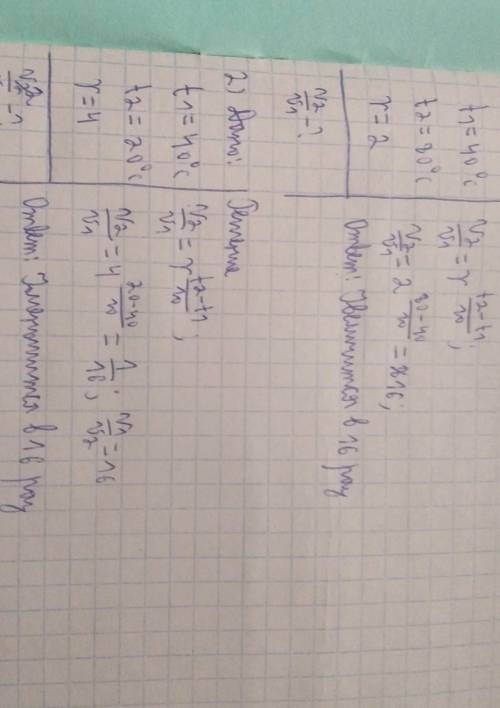 t₁ = 40°C
t₂ = 80°C
γ = 2
V₂/V₁ - ?
V₂/V₁ = γ^((t₂-t₁)/10);
V₂/V₁ = 2^((80-40)/10) = 16;
Ответ: Увеличится в 16 раз
2) Дано:
t₁ = 40°C
t₂ = 20°C
γ = 4
V₂/V₁ - ?
Решение
V₂/V₁ = γ^((t₂-t₁)/10);
V₂/V₁ = 4^((20-40)/10) = 1/16; V₁/V₂ = 16
Ответ: Уменьшится в 16 раз